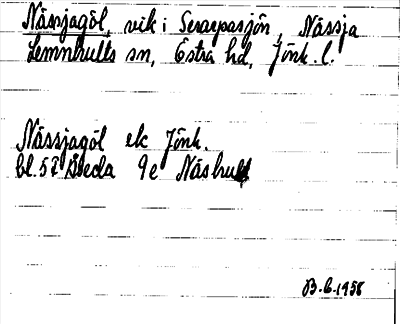 Nässjagöl, vik i Serarpasjön, Nässja
Lemnhults sn, Östra hd, Jönk. l.
Nässjagöl ek Jönk.
bl. 57 Åseda 9e Näshult
B.G. 1958